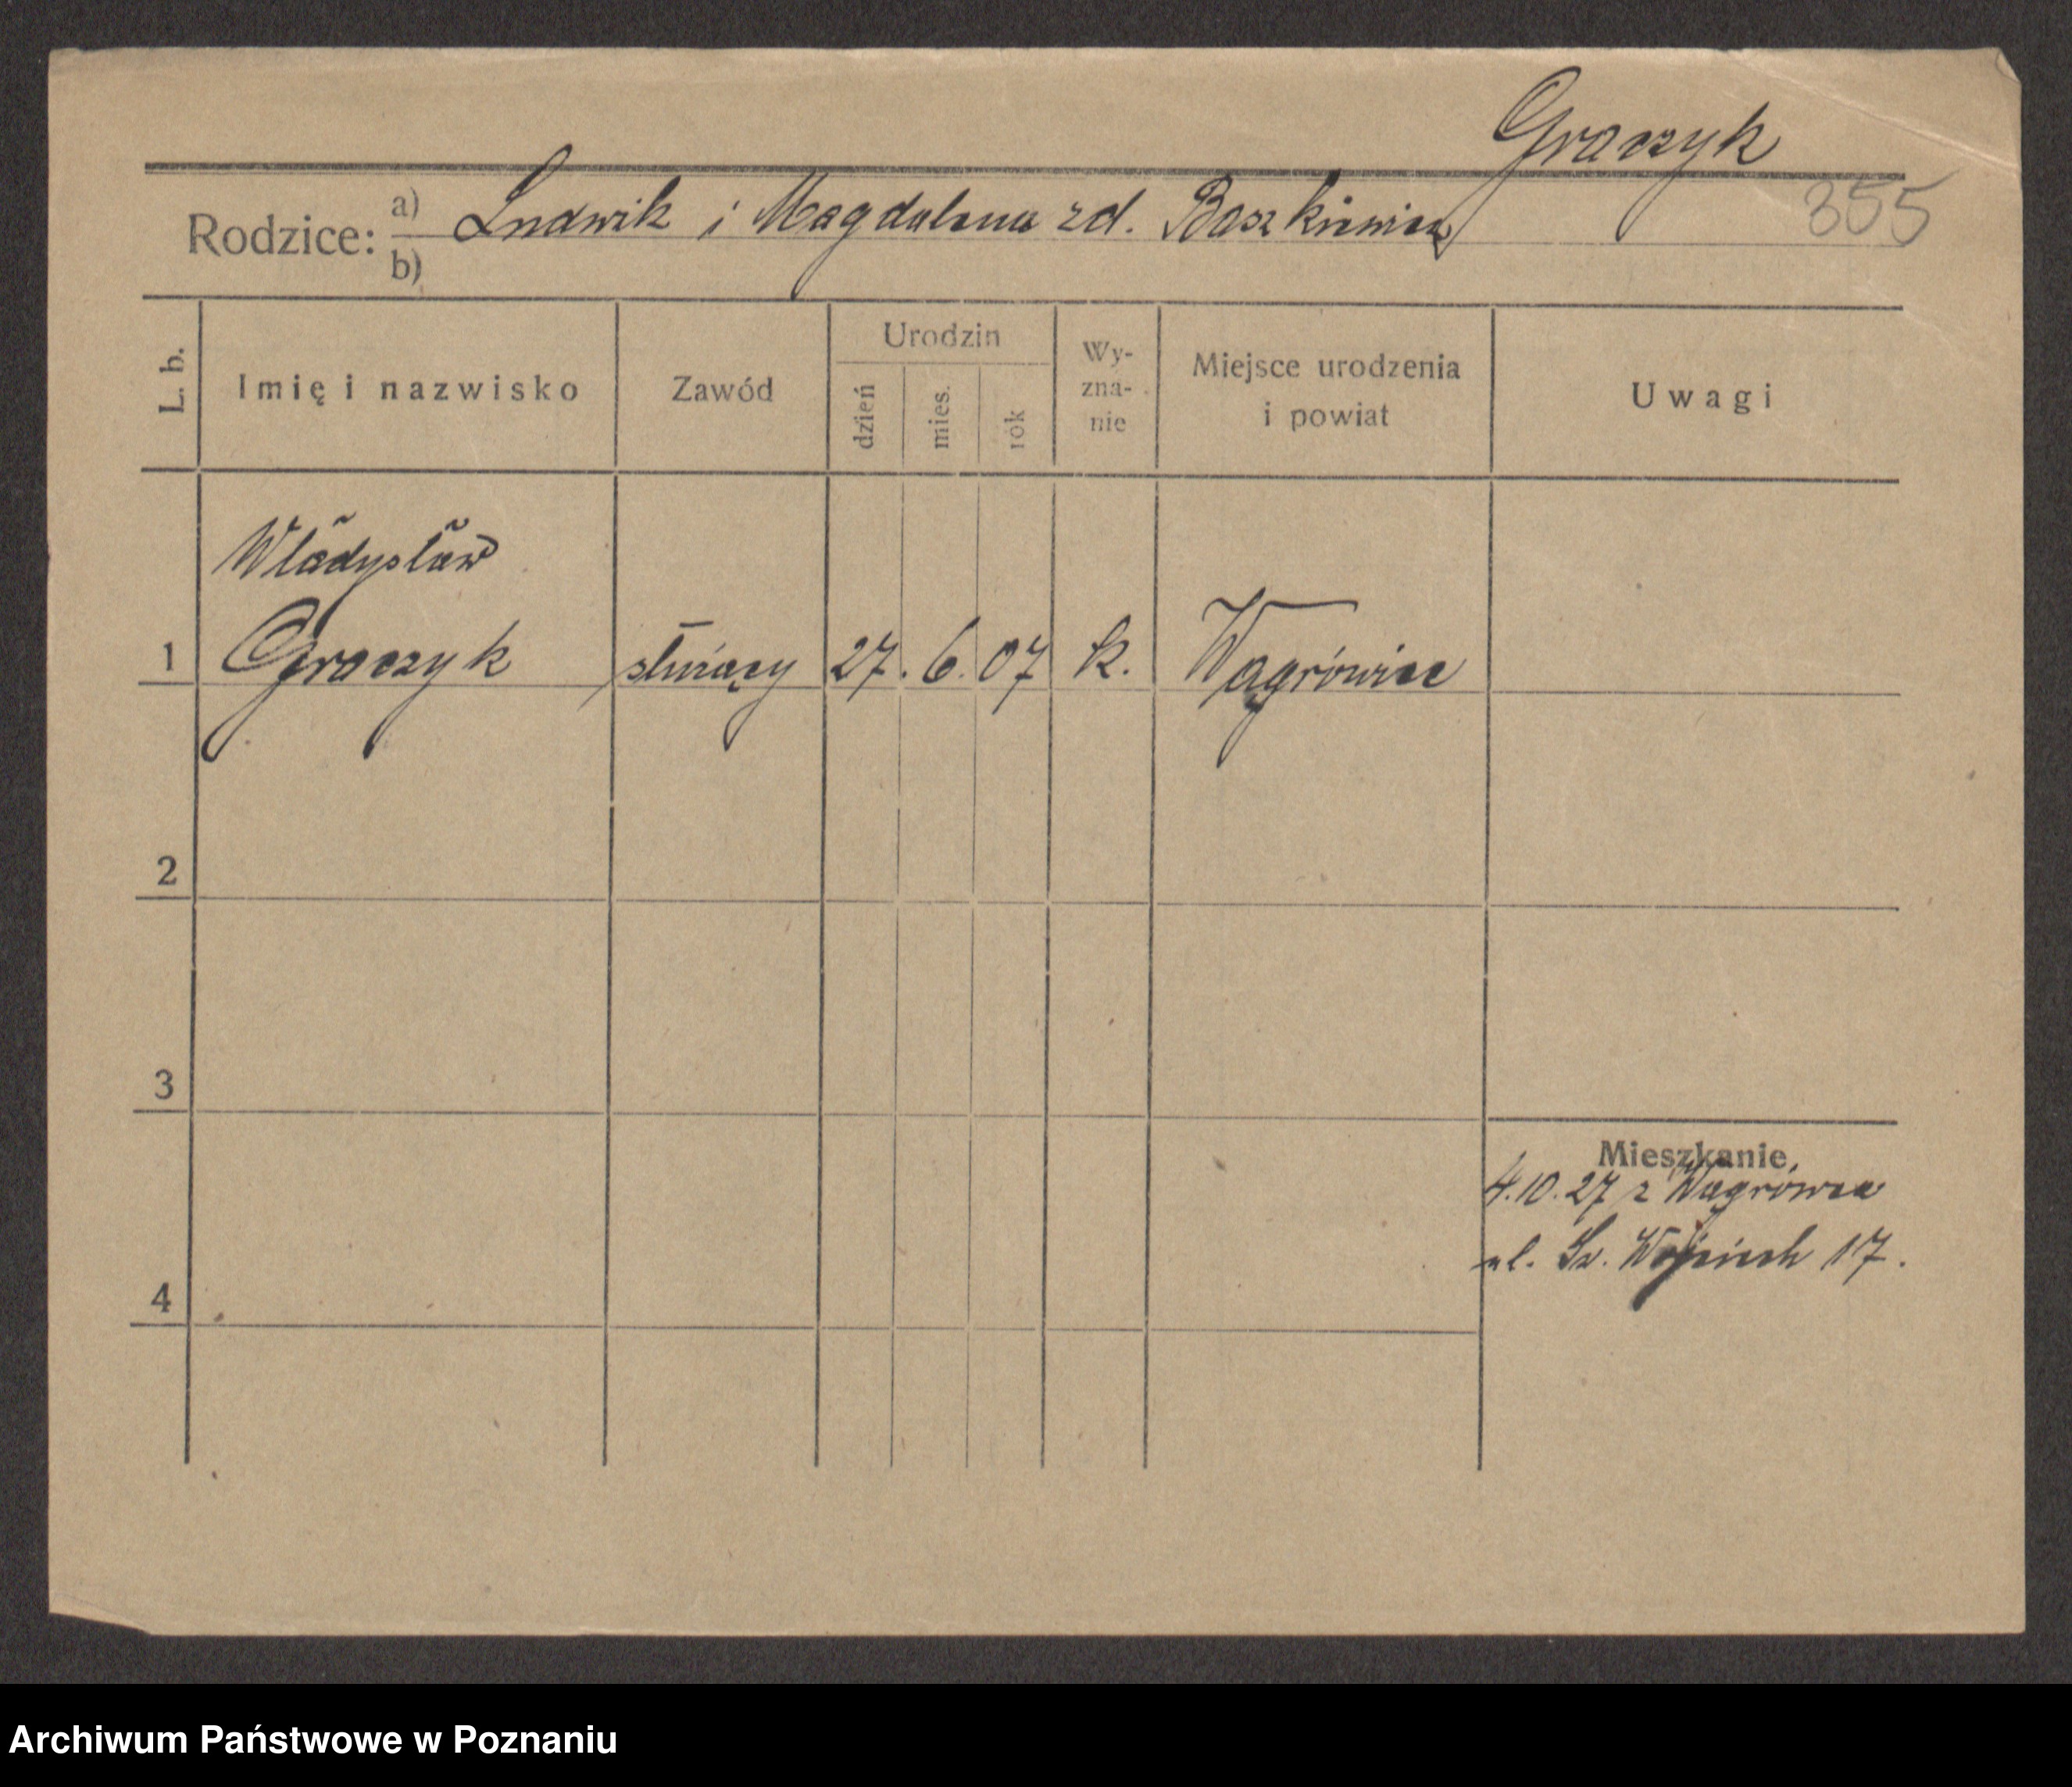 Graczyk
355
Rodzice: a) Ludwik i Magdalena zd. Baszkiewicz
b)
L. b. Imię i nazwisko Zawód Urodzin dzień mies. rok Wy-zna-nie Miejsce urodzenia i powiat Uwagi
Władysław
1 Graczyk służący 27. 6. 07 k. Wągrówiec
2
3
Mieszkanie
4.10.27 z Wągrówca
ul. Św. Wojciech 17.
4
Archiwum Państwowe w Poznaniu